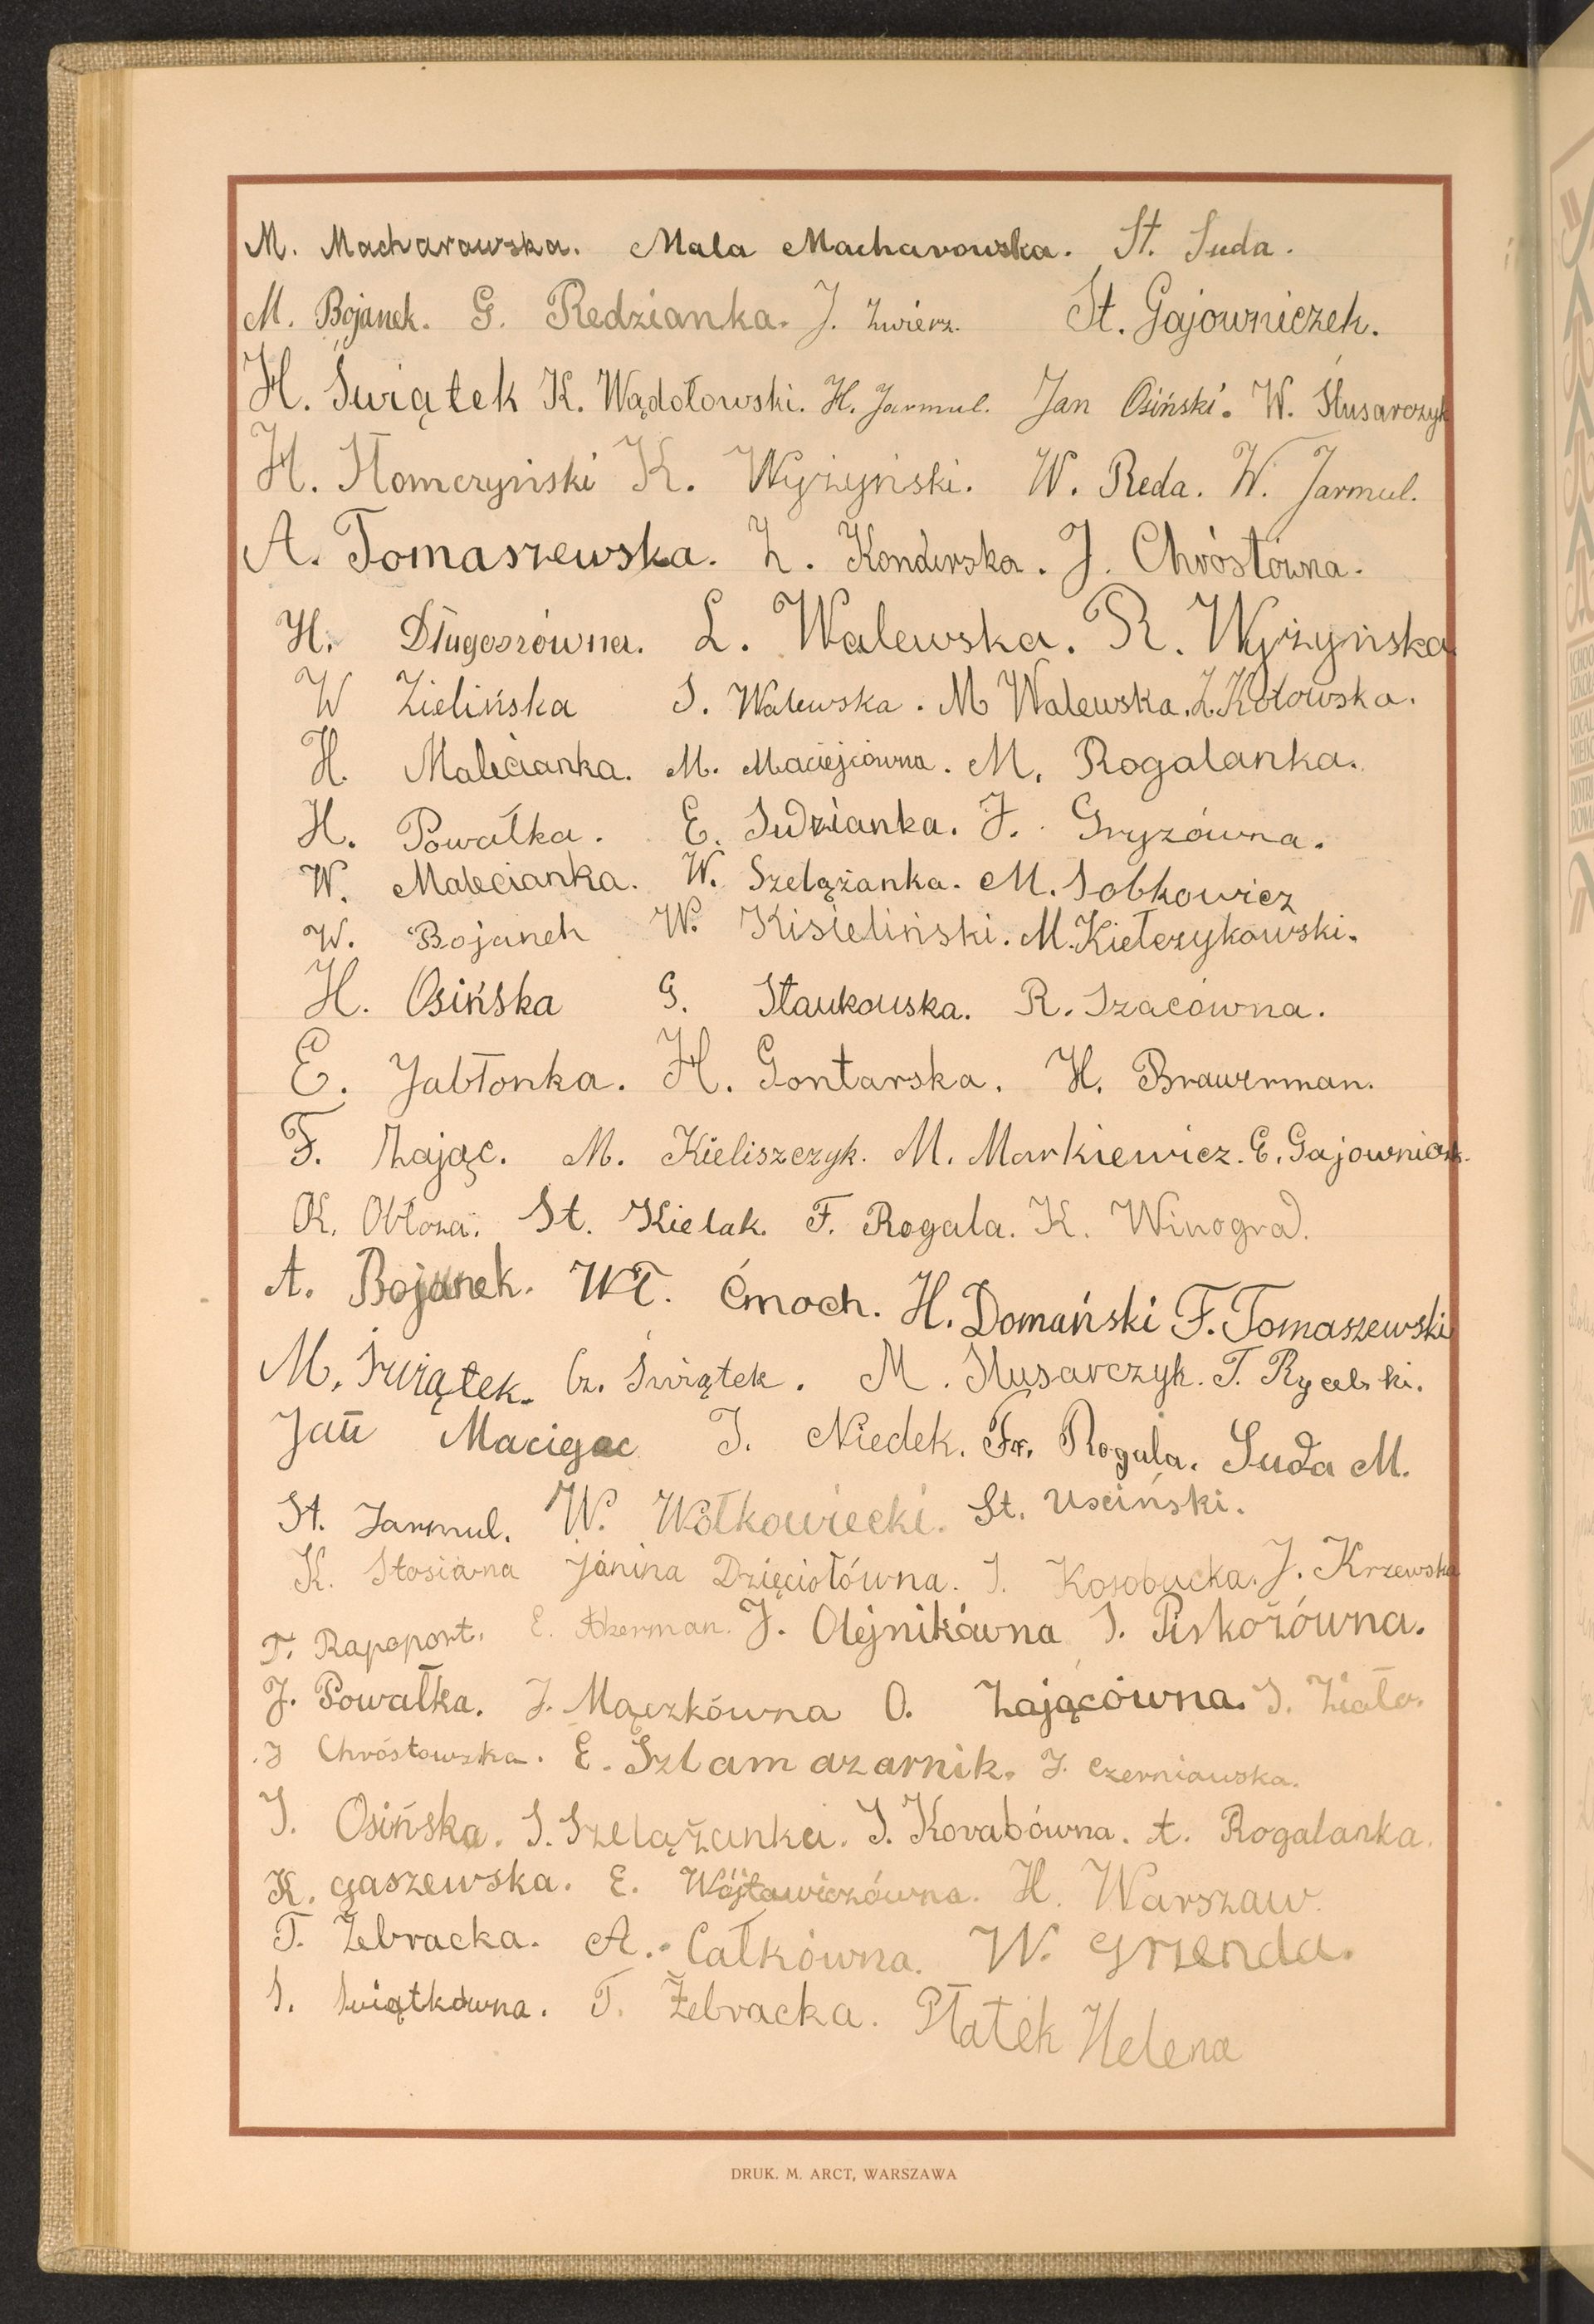 M. Macharowska. Mala Macharowska. St. Suda.
M. Bojanek. G. Redzianka. J. Zwierz. St. Gajowniczek.
H. Świątek K. Wądołowski. H. Jarmul. Jan Osiński. W. Ślusarczyk
H. Słomczyński K. Wyżyński. W. Reda. W. Jarmul.
A. Tomaszewska. Z. Konderska. J. Chróstówna.
H. Długoszówna. L. Walewska. R. Wyżyńska
W Zielińska S. Walewska. M Walewska. Z. Kotowska.
H. Malecianka. M. Maciejciówna. M. Rogalanka.
H. Powałka. E. Sudzianka. J. Gryzówna.
W. Malecianka. W. Szelążanka. M. Sobkowicz
W. Bojanek W. Kisieliński. M. Kiełczykowski.
H. Osińska G. Staukouska. R. Szacówna.
E. Jabłonka. H. Gontarska. H. Brawerman.
F. Zając. M. Kieliszczyk. M. Markiewicz. E. Gajowniczek.
K. Obłoza. St. Kielak. F. Rogala. K. Winograd.
A. Bojanek. WŁ. Ćmoch. H. Domański F. Tomaszewski
M. Świątek. Cz. Świątek. M. Ślusarczyk. T. Rycelski.
Jan Macigac J. Niedek. Fr. Rogala. Suda M.
St. Jarmul. W. Wołkowiecki. St. Usciński.
K. Stosiówna Janina Dzięciołówna. J. Kosobucka. J. Krzewska
F. Rapoport. E. Akerman. J. Olejnikówna S. Piskożówna.
J. Powałka. J. Mączkówna O. Zającówna. S. Ziało.
J Chróstowska. E. Szlamazarnik. J. Czerniawska.
J. Osińska. S. Szelążanka. J. Kovabówna. A. Rogalanka.
K. Gaszewska. E. Wójtawiczówna. H. Warszaw.
T. Żebracka. A. Całkówna. W. Grzenda.
S. Świątkówna. T. Żebracka. Płatek Helena
DRUK. M. ARCT, WARSZAWA